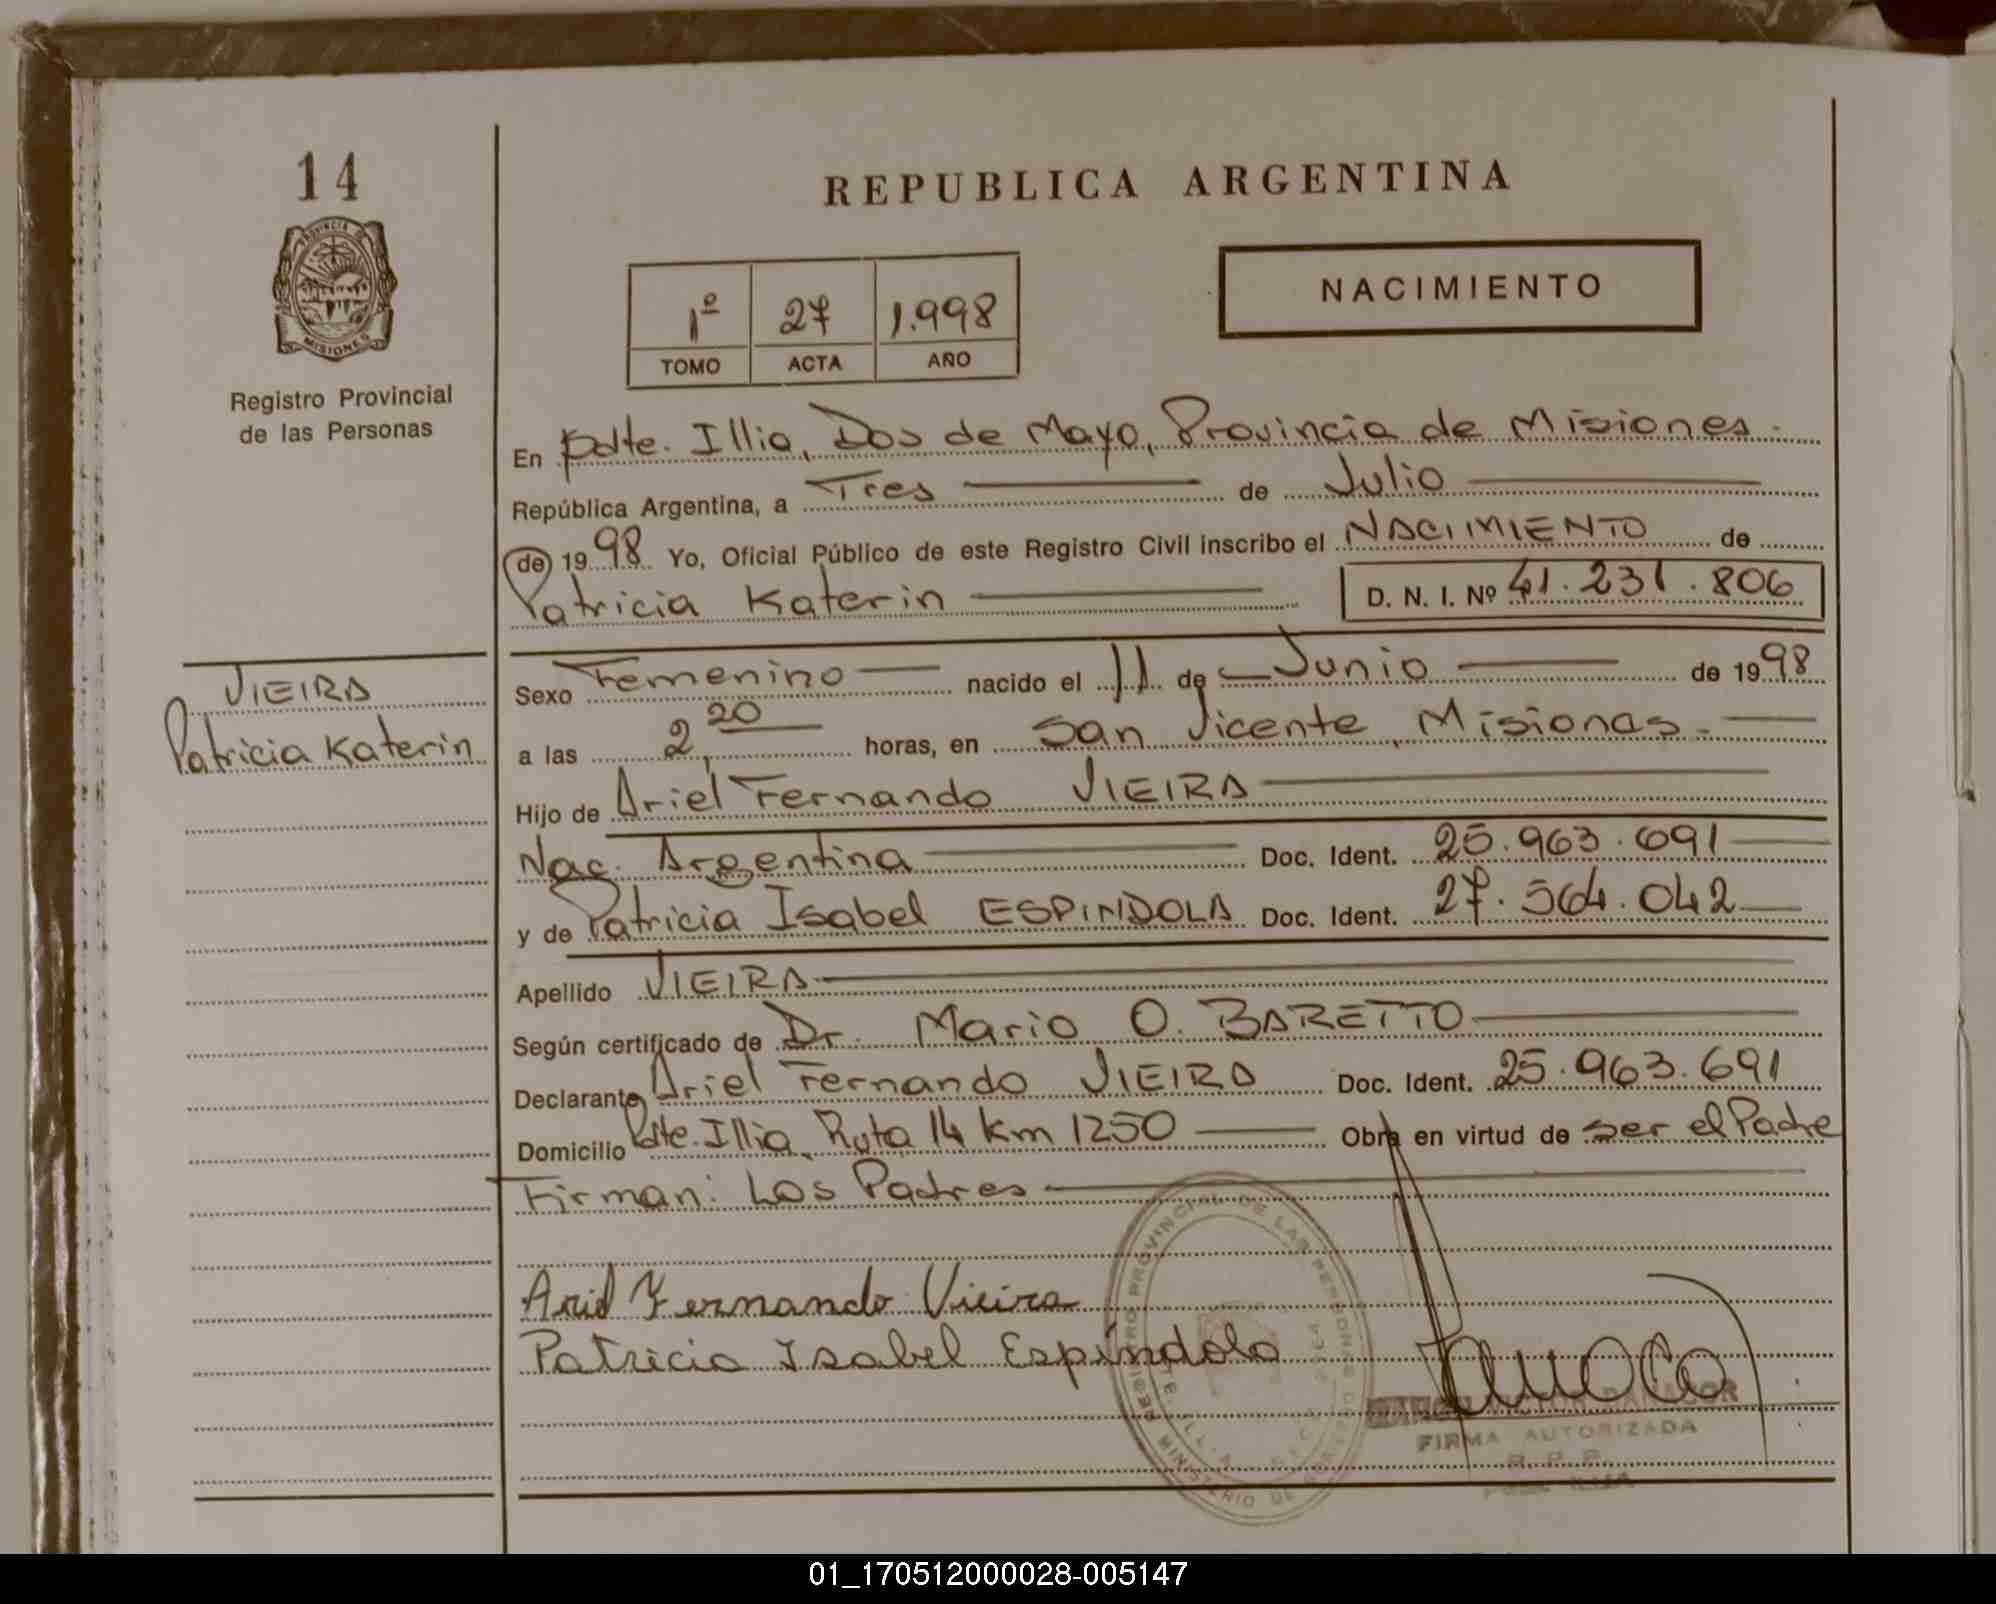 14
PROVINCIA DE
MISIONES
Registro Provincial
de las Personas
REPUBLICA ARGENTINA
1º 27 1.998
TOMO ACTA AÑO
NACIMIENTO
En pdte. Illia, Dos de Mayo, Provincia de Misiones.
República Argentina, a Tres de Julio
de 1998 Yo, Oficial Público de este Registro Civil inscribo el NACIMIENTO de
Patricia Katerin D. N. I. Nº 41.231.806
VIEIRA
Patricia Katerin
Sexo Femenino nacido el 11 de Junio de 1998
a las 2,20 horas, en San Vicente, Misiones.
Hijo de Ariel Fernando VIEIRA
Nac. Argentina Doc. Ident. 25.963.691
y de Patricia Isabel ESPINDOLA Doc. Ident. 27.564.042
Apellido VIEIRA
Según certificado de Dr. Mario O. BARETTO
Declarante Ariel Fernando VIEIRA Doc. Ident. 25.963.691
Domicilio Pdte. Illia, Ruta 14 Km 1250 Obra en virtud de ser el Padre
Firman: Los Padres
Ariel Fernando Vieira
Patricia Isabel Espíndola
REGISTRO PROVINCIAL DE LAS PERSONAS
MINISTERIO DE
FIRMA AUTORIZADA
R. P. P.
01_170512000028-005147